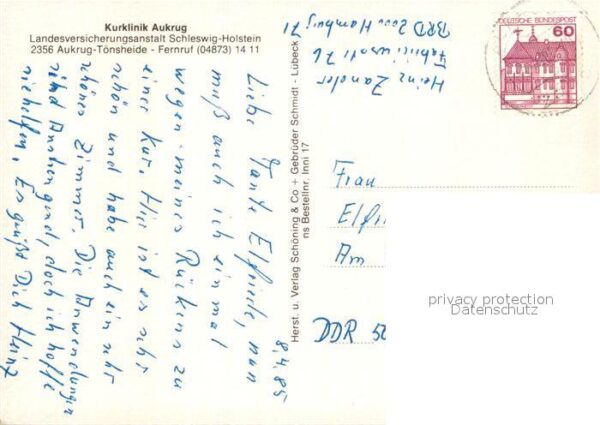 Kurklinik Aukrug
Landesversicherungsanstalt Schleswig-Holstein
2356 Aukrug-Tönsheide - Fernruf (04873) 14 11
8.4.85
Liebe Tante Elfriede, nun
muß auch ich einmal
wegen meines Rückens zu
einer Kur. Hier ist es sehr
schön und habe auch ein sehr
schönes Zimmer. Die Anwendungen
sind anstrengend, doch ich hoffe
sie helfen. Es grüßt Dich Heinz
Herst. u. Verlag Schöning & Co + Gebrüder Schmidt - Lübeck
ns Bestellnr. Inni 17
Heinz Zander
76
BRD 2000 Hamburg 71
DEUTSCHE BUNDESPOST
60
Frau
Elfri
Am
DDR
privacy protection
Datenschutz